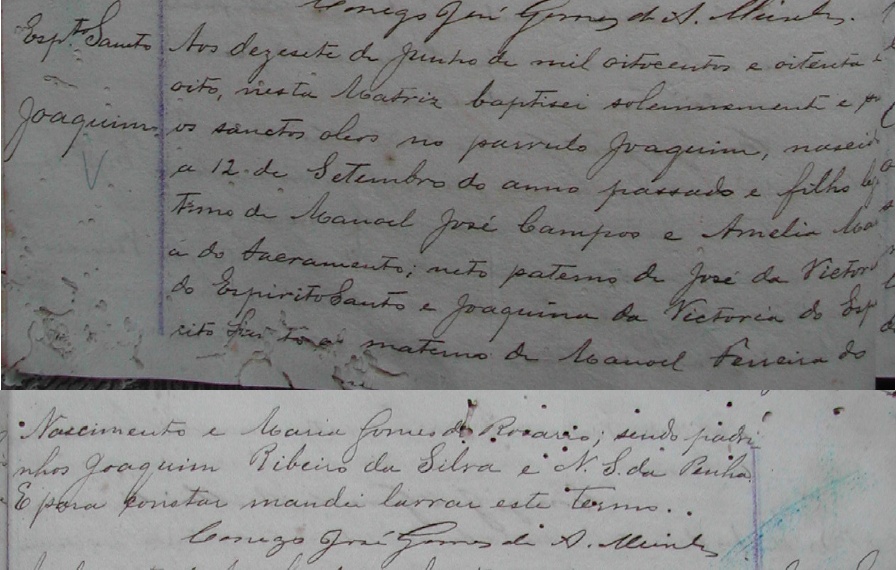 Conego José Gomes de A. Meirelles.
Esp.to Santo
Joaquim.
Aos dezesete de Junho de mil oitocentos e oitenta e
oito, nesta Matriz baptisei solemnemente e puz
os sanctos oleos no parvulo Joaquim, nascido
a 12 de Setembro do anno passado e filho legi
timo de Manoel José Campos e Amelia Ma
a do Sacramento; neto paterno de José da Victoria
do Espirito Santo e Joaquina da Victoria do Espi
rito Santo e materno de Manoel Ferreira do
Nascimento e Maria Gomes do Rosario; sendo padri
nhos Joaquim Ribeiro da Silva e N. S. da Penha
E para constar mandei lavrar este termo.
Conego José Gomes de A. Meirelles